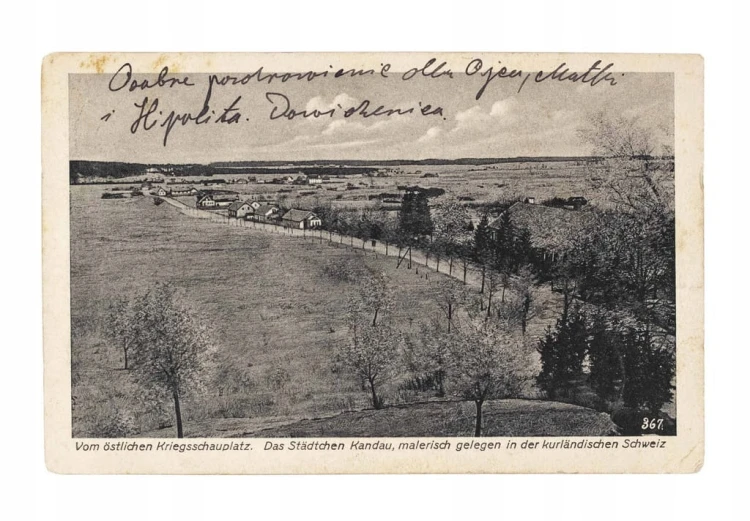 Osobne pozdrowienie dla Ojca, Matki
i Hipolita. Dowidzenica.
367.
Vom östlichen Kriegsschauplatz. Das Städtchen Kandau, malerisch gelegen in der kurländischen Schweiz